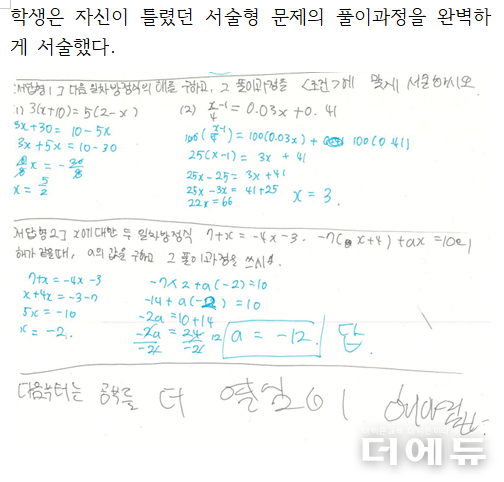 학생은 자신이 틀렸던 서술형 문제의 풀이과정을 완벽하
게 서술했다.
[서답형1] 다음 일차방정식의 해를 구하고, 그 풀이과정을 <조건>에 맞게 서술하시오.
(1) 3(x+10)=5(2-x)
3x+30= 10-5x
3x+5x=10-30
x=
(2) x-1/4 = 0.03x+0.41
100(x-1/4)=100(0.03x)+ 100(0.41)
25(x-1)= 3x+41
25x-25=3x+41
25x-3x=41+25
22x=66
x=3.
[서답형2] x에 대한 두 일차방정식 7+x=-4x-3, -7(x+4)+ax=10의
해가 같을 때, a의 값을 구하고 그 풀이과정을 쓰시오.
7+x=-4x-3
x+4x=-3-7
5x=-10
x=-2.
-7×2+a(-2)=10
-14+a(-2)=10
-2a=10+14
-2a/-2=24/-2 12
a=-12. 답.
다음부터는 공부를 더 열심히 해야겠다.
더에듀